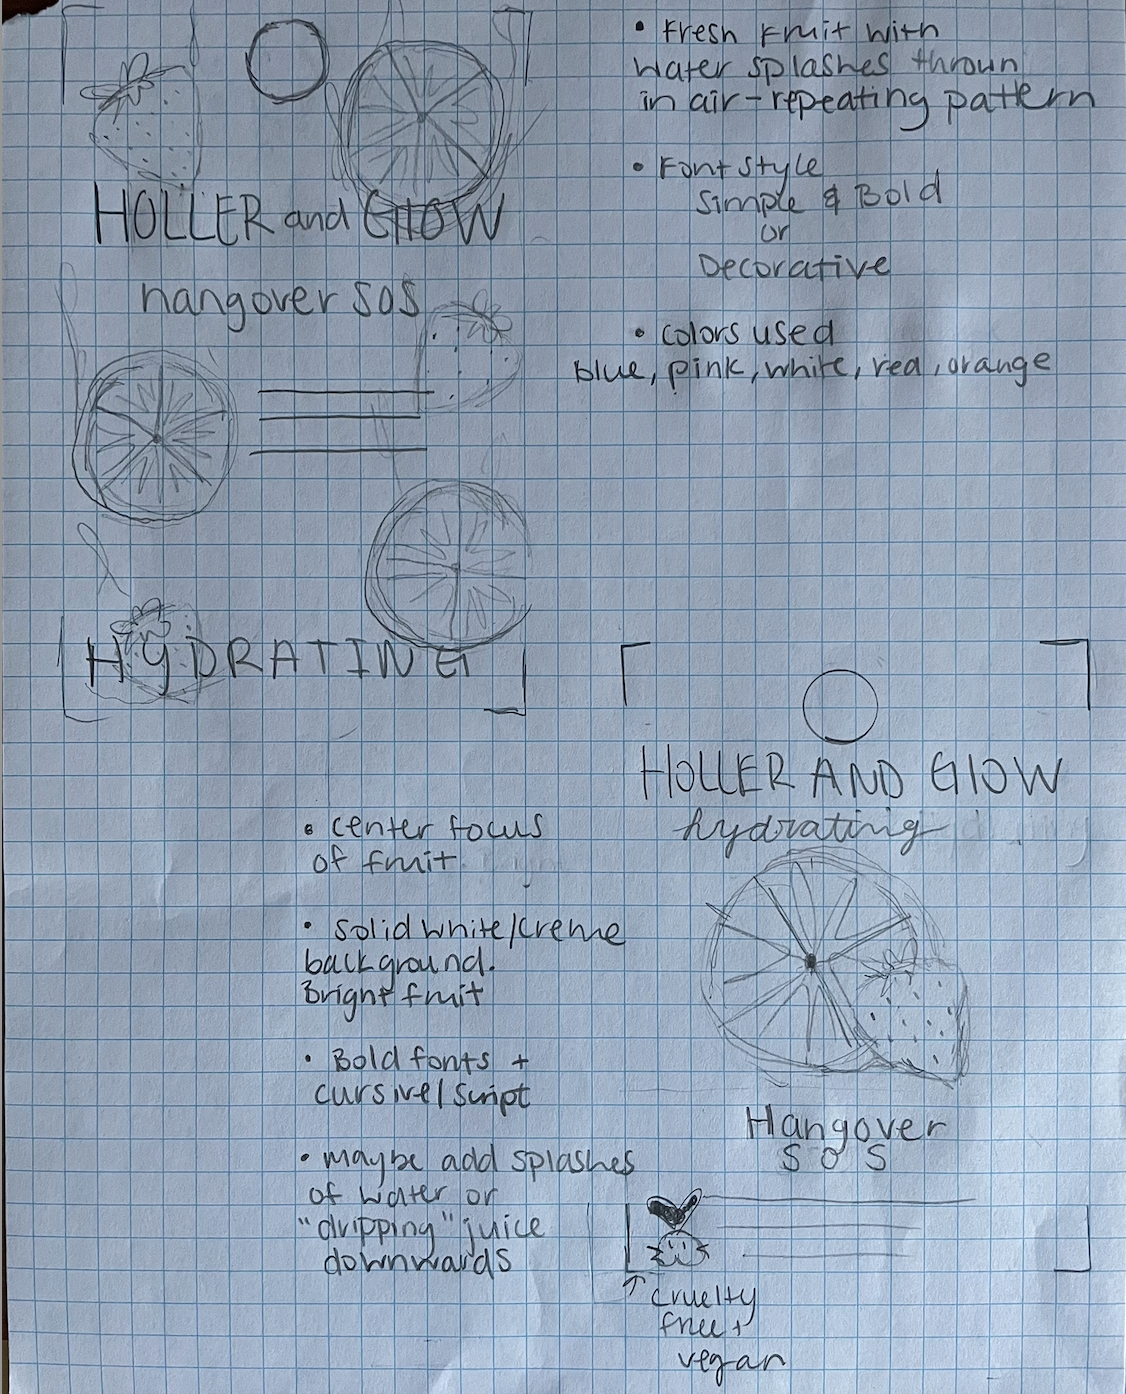 HOLLER and GlOW
hangover SOS
HYDRATING
• Fresh Fruit with
water splashes thrown
in air - repeating pattern
• Font style
Simple & Bold
or
Decorative
• colors used
blue, pink, white, red, orange
• center focus
of fruit
• Solid white/creme
background.
Bright fruit
• Bold fonts +
cursive/script
• maybe add splashes
of water or
"dripping" juice
downwards
HOLLER AND GlOW
hydrating
Hangover
SOS
↑ cruelty
free +
vegan